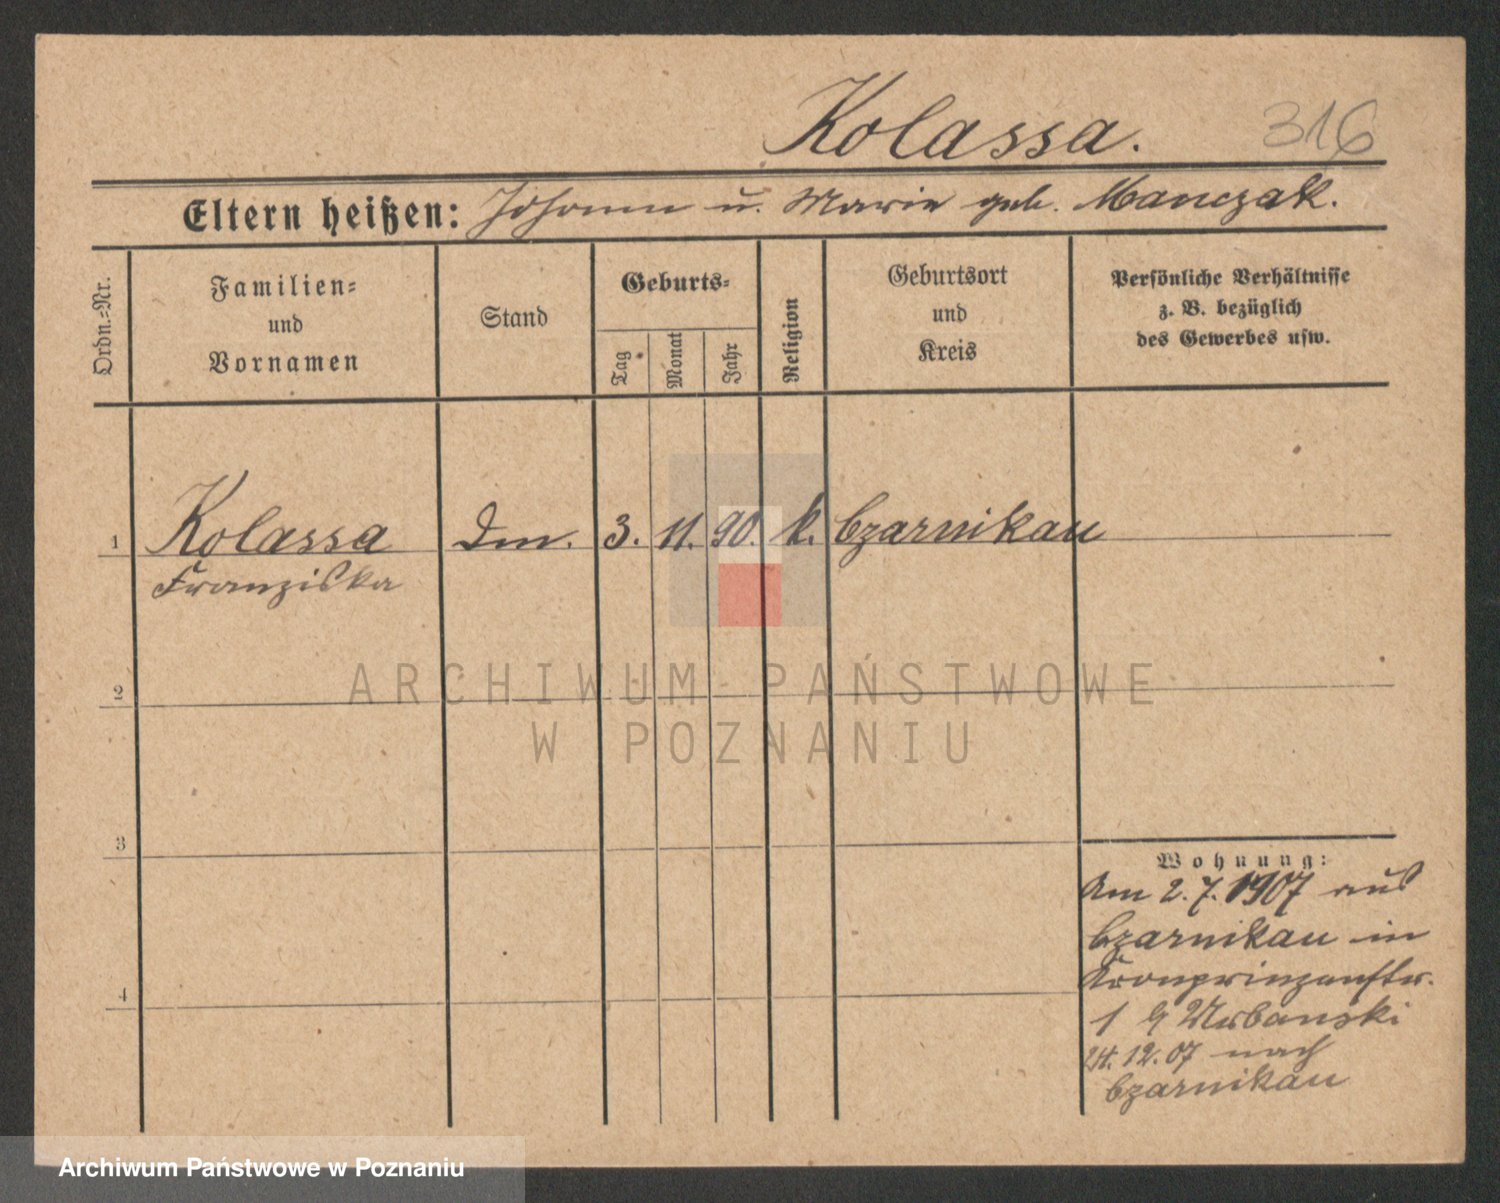 Kolassa. 316
Eltern heißen: Johann u. Marie geb. Manczak.
Ordn.-Nr.
Familien-
und
Vornamen
Stand
Geburts-
Tag
Monat
Jahr
Religion
Geburtsort
und
Kreis
Persönliche Verhältnisse
z. B. bezüglich
des Gewerbes usw.
1 Kolassa Dm. 3. 11. 90. k. Czarnikau
Franziska
2
3
4
Wohnung:
Am 2.7.1907 aus
Czarnikau in
Kronprinzenstr.
1 Urbanski
12.07 nach
Czarnikau
ARCHIWUM PAŃSTWOWE
W POZNANIU
Archiwum Państwowe w Poznaniu